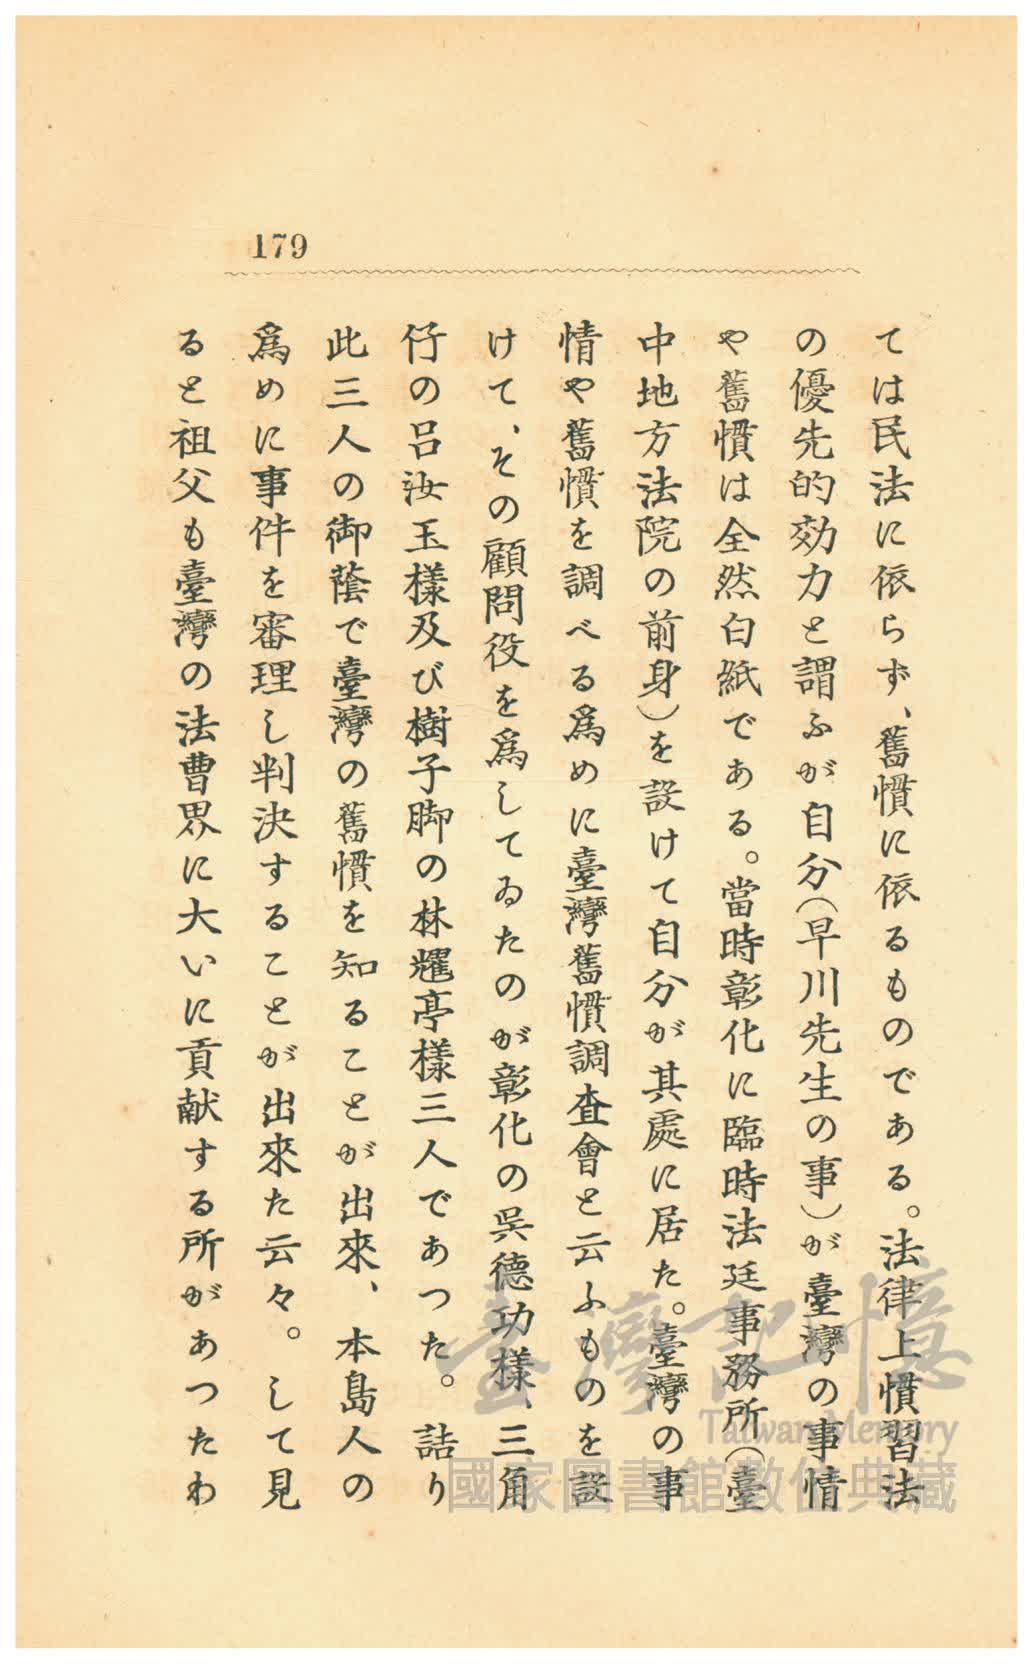 179
ては民法に依らず、舊慣に依るものである。法律上慣習法
の優先的効力と謂ふが自分(早川先生の事)が臺灣の事情
や舊慣は全然白紙である。當時彰化に臨時法廷事務所(臺
中地方法院の前身)を設けて自分が其處に居た。臺灣の事
情や舊慣を調べる爲めに臺灣舊慣調査會と云ふものを設
けて、その顧問役を爲してゐたのが彰化の呉德功樣、三角
仔の呂汝玉樣及び樹子脚の林耀亭樣三人であつた。詰り
此三人の御蔭で臺灣の舊慣を知ることが出來、本島人の
爲めに事件を審理し判決することが出來た云々。して見
ると祖父も臺灣の法曹界に大いに貢献する所があつたわ
臺灣記憶
Taiwan Memory
國家圖書館數位典藏